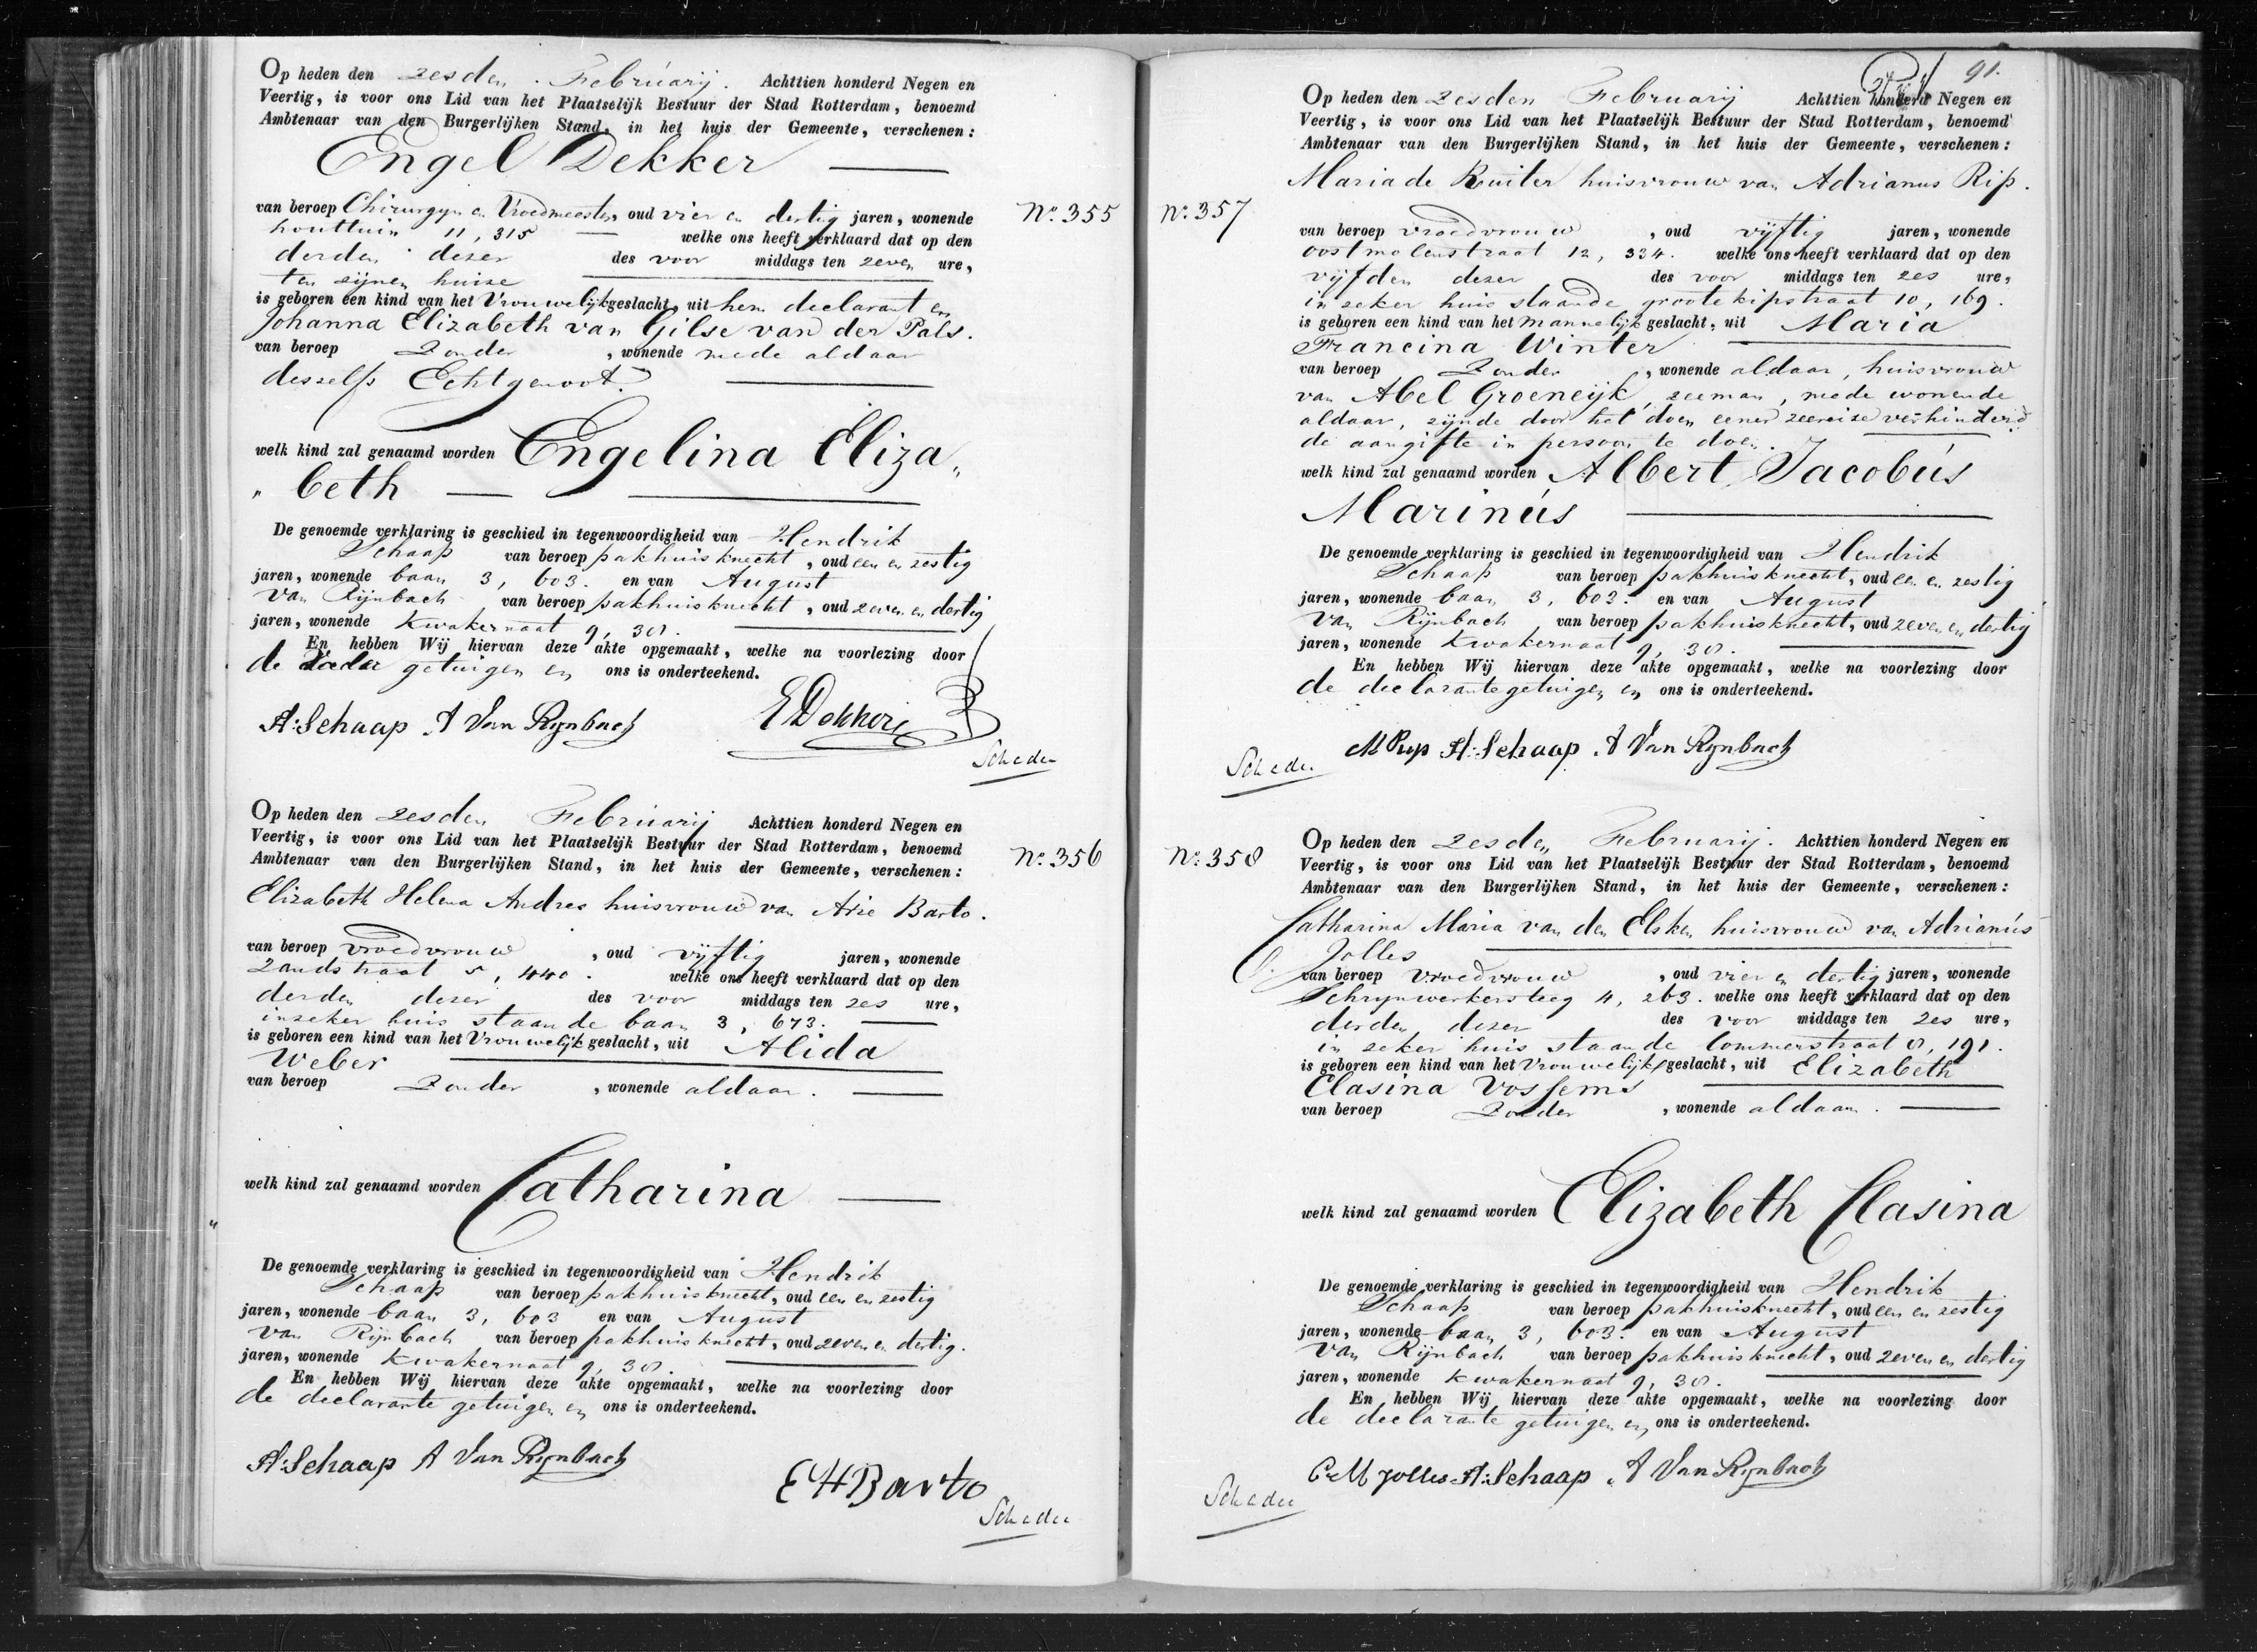 Op heden den zesden Februarij. Achttien honderd Negen en
Veertig, is voor ons Lid van het Plaatselijk Bestuur der Stad Rotterdam, benoemd
Ambtenaar van den Burgerlijken Stand, in het huis der Gemeente, verschenen:
Engel Dekker
van beroep Chirurgyn en Vroedmeester, oud vier en dertig jaren, wonende
houttuin 11, 315 welke ons heeft verklaard dat op den
derden dezer des voor middags ten zeven ure,
ten zijnen huize
is geboren een kind van het Vrouwelijk geslacht, uit hem declarant en
Johanna Elizabeth van Gilse van der Pals.
van beroep Zonder, wonende mede aldaar
deszelfs Echtgenoot
welk kind zal genaamd worden Engelina Eliza„
„beth
De genoemde verklaring is geschied in tegenwoordigheid van Hendrik
Schaap van beroep pakhuisknecht, oud een en zestig
jaren, wonende baan 3, 603. en van August
van Rijnbach van beroep pakhuisknecht, oud zeven en dertig
jaren, wonende Kwakernaat 9, 38.
En hebben Wij hiervan deze akte opgemaakt, welke na voorlezing door
de Vader getuigen en ons is onderteekend.
H: Schaap A Van Rynbach E Dekker
Scheder
No. 355
Op heden den zesden Februarij Achttien honderd Negen en
Veertig, is voor ons Lid van het Plaatselijk Bestuur der Stad Rotterdam, benoemd
Ambtenaar van den Burgerlijken Stand, in het huis der Gemeente, verschenen:
No. 356
Elizabeth Helena Andres huisvrouw van Arie Barto.
van beroep vroedvrouw, oud vijftig jaren, wonende
Zandstraat 5, 440. welke ons heeft verklaard dat op den
derden dezer des voor middags ten zes ure,
in zeker huis staande baan 3, 673.
is geboren een kind van het Vrouwelijk geslacht, uit Alida
Weber
van beroep Zonder, wonende aldaar.
welk kind zal genaamd worden Catharina
De genoemde verklaring is geschied in tegenwoordigheid van Hendrik
Schaap van beroep pakhuisknecht, oud een en zestig
jaren, wonende baan 3, 603 en van August
van Rijnbach van beroep pakhuisknecht, oud zeven en dertig.
jaren, wonende Kwakernaat 9, 38.
En hebben Wij hiervan deze akte opgemaakt, welke na voorlezing door
de declarante getuigen en ons is onderteekend.
H: Schaap A Van Rynbach
E H Barto
Scheder
91.
Op heden den zesden Februarij Achttien honderd Negen en
Veertig, is voor ons Lid van het Plaatselijk Bestuur der Stad Rotterdam, benoemd
Ambtenaar van den Burgerlijken Stand, in het huis der Gemeente, verschenen:
Maria de Ruiter huisvrouw van Adrianus Rip.
No. 357
van beroep vroedvrouw, oud vijftig jaren, wonende
oostmolenstraat 12, 334. welke ons heeft verklaard dat op den
vijfden dezer des voor middags ten zes ure,
in zeker huis staande groote kipstraat 10, 169.
is geboren een kind van het mannelijk geslacht, uit Maria
Francina Winter
van beroep Zonder, wonende aldaar, huisvrouw
van Abel Groeneijk, zeeman, mede wonende
aldaar, zijnde door het doen eener zeereize verhinderd
de aangifte in persoon te doen.
welk kind zal genaamd worden Albert Jacobus
Marinus
De genoemde verklaring is geschied in tegenwoordigheid van Hendrik
Schaap van beroep pakhuisknecht, oud een en zestig
jaren, wonende baan 3, 603. en van August
van Rijnbach van beroep pakhuisknecht, oud zeven en dertig
jaren, wonende Kwakernaat 9, 38.
En hebben Wij hiervan deze akte opgemaakt, welke na voorlezing door
de declarante getuigen en ons is onderteekend.
M Ryp H: Schaap A Van Rynbach
Scheder
Op heden den zesden Februarij. Achttien honderd Negen en
No. 358
Veertig, is voor ons Lid van het Plaatselijk Bestuur der Stad Rotterdam, benoemd
Ambtenaar van den Burgerlijken Stand, in het huis der Gemeente, verschenen:
Catharina Maria van den Elsken huisvrouw van Adrianus
Jolles
van beroep vroedvrouw, oud vier en dertig jaren, wonende
Schrynwerkersteeg 4, 263. welke ons heeft verklaard dat op den
derden dezer des voor middags ten zes ure,
in zeker huis staande Lommerstraat 8, 191.
is geboren een kind van het Vrouwelijk geslacht, uit Elizabeth
Clasina Vossems
van beroep Zonder, wonende aldaar.
welk kind zal genaamd worden Elizabeth Clasina
De genoemde verklaring is geschied in tegenwoordigheid van Hendrik
Schaap van beroep pakhuisknecht, oud een en zestig
jaren, wonende baan 3, 603. en van August
van Rijnbach van beroep pakhuisknecht, oud zeven en dertig
jaren, wonende Kwakernaat 9, 38.
En hebben Wij hiervan deze akte opgemaakt, welke na voorlezing door
de declarante getuigen en ons is onderteekend.
C M Jolles H: Schaap A Van Rynbach
Scheder